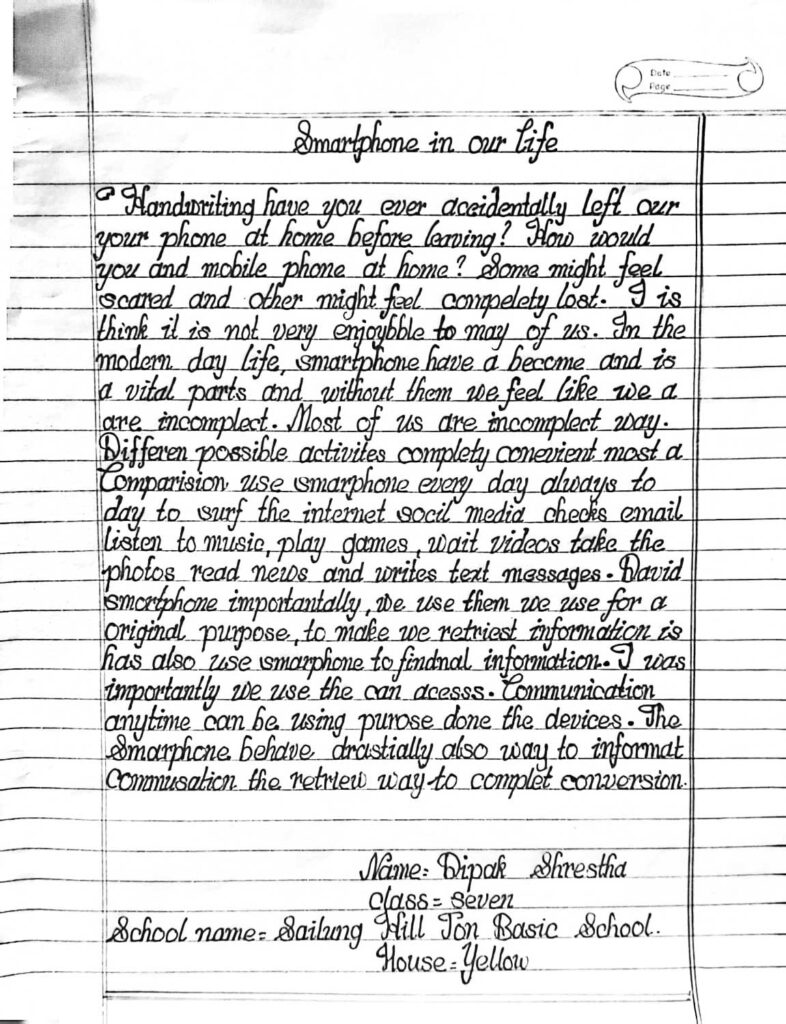 Date
Page
Smartphone in our life
Handwriting have you ever accidentally left our
your phone at home before leaving? How would
you and mobile phone at home? Some might feel
scared and other might feel compelety lost. I is
think it is not very enjoybble to may of us. In the
modern day life, smartphone have a become and is
a vital parts and without them we feel like we a
are incomplect. Most of us are incomplect way.
Differen possible activites complety conevient most a
Comparision use smarphone every day always to
day to surf the internet socil media checks email
listen to music, play games, wait videos take the
photos read news and writes text messages. David
smortphone importantally, we use them we use for a
original purpose, to make we retriest information is
has also use smarphone to findnal information. I was
importantly we use the can acesss. Communication
anytime can be using purose done the devices. The
Smarphone behave drastially also way to informat
Commusation the retriew way to complet conversion.
Name= Dipak Shrestha
class= seven
School name= Sailung Hill Ton Basic School.
House= Yellow